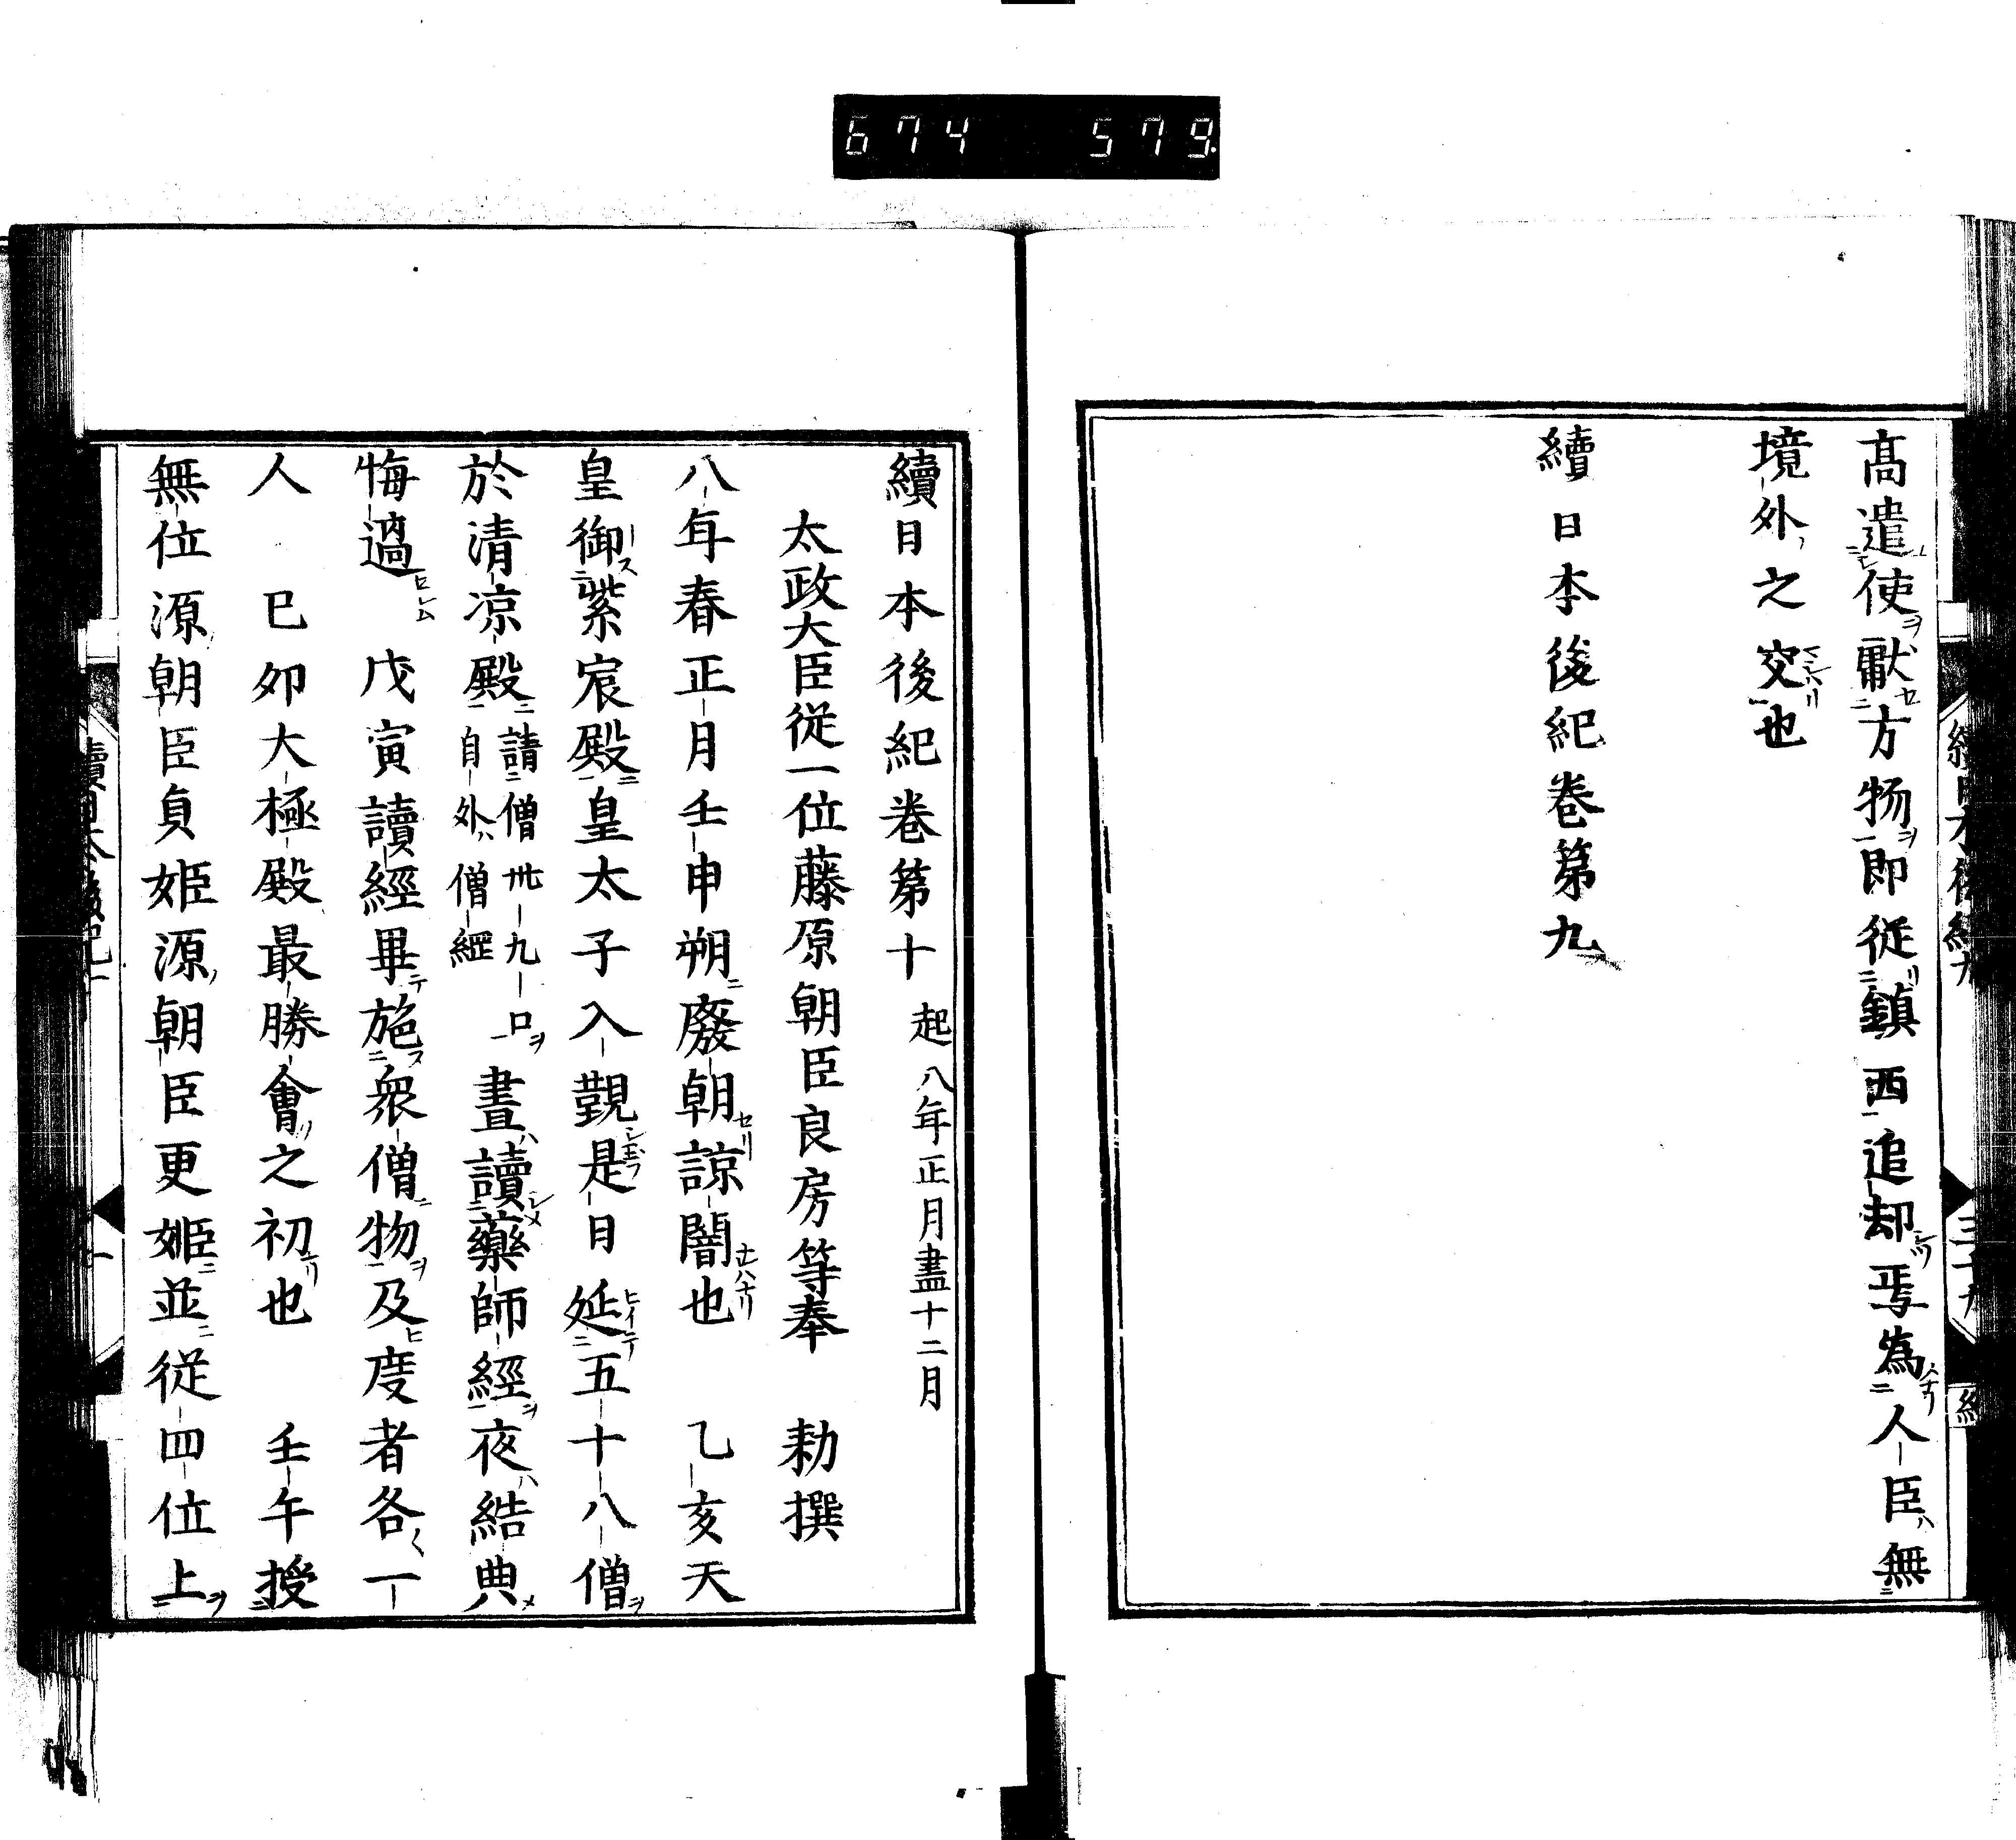 674 579
高遣使獻方物即從鎮西追却焉為人臣無
境外之交也
續日本後紀卷第九
續日本後紀卷第十 起八年正月盡十二月
太政大臣從一位藤原朝臣良房等奉 勅撰
八年春正月壬申朔廢朝諒闇也 乙亥天
皇御紫宸殿皇太子入覲是日延五十八僧
於清凉殿
請僧卅九口
自外僧綱
晝讀藥師經夜結典
悔過 戊寅讀經畢施衆僧物及度者各一
人 已卯大極殿最勝會之初也 壬午授
無位源朝臣貞姫源朝臣更姫並從四位上